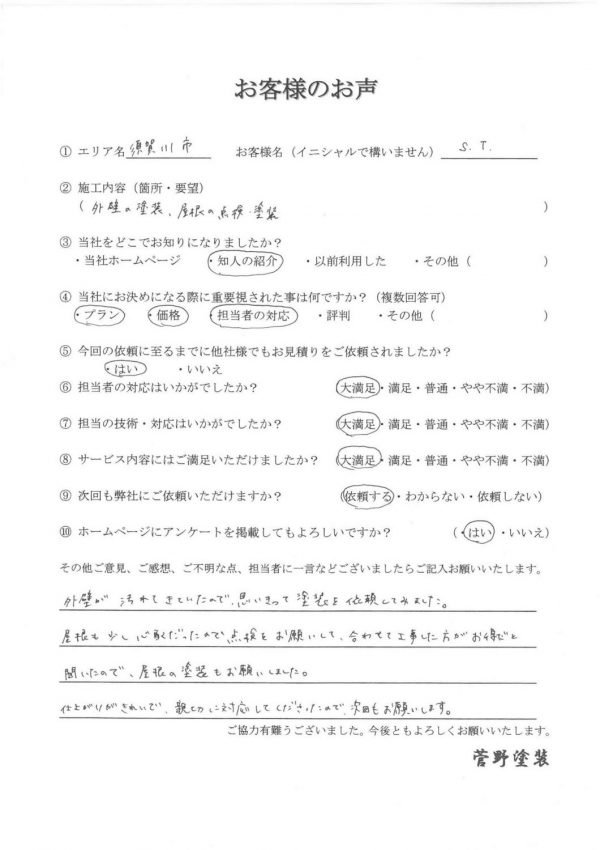 お客様のお声
① エリア名 須賀川市 お客様名(イニシャルで構いません) S.T.
② 施工内容(箇所・要望)
(外壁の塗装、屋根の点検・塗装)
③ 当社をどこでお知りになりましたか?
・当社ホームページ ・知人の紹介 ・以前利用した ・その他( )
④ 当社にお決めになる際に重要視された事は何ですか?(複数回答可)
・プラン ・価格 ・担当者の対応 ・評判 ・その他( )
⑤ 今回の依頼に至るまでに他社様でもお見積りをご依頼されましたか?
・はい ・いいえ
⑥ 担当者の対応はいかがでしたか? (大満足・満足・普通・やや不満・不満)
⑦ 担当の技術・対応はいかがでしたか? (大満足・満足・普通・やや不満・不満)
⑧ サービス内容にはご満足いただけましたか? (大満足・満足・普通・やや不満・不満)
⑨ 次回も弊社にご依頼いただけますか? (依頼する・わからない・依頼しない)
⑩ ホームページにアンケートを掲載してもよろしいですか? (・はい・いいえ)
その他ご意見、ご感想、ご不明な点、担当者に一言などございましたらご記入お願いいたします。
外壁が汚れてきていたので、思いきって塗装を依頼してみました。
屋根も少し心配だったので点検をお願いして、合わせて工事した方がお得だと
聞いたので、屋根の塗装もお願いしました。
仕上がりがきれいで、親切に対応してくださったので、次回もお願いします。
ご協力有難うございました。今後ともよろしくお願いいたします。
菅野塗装